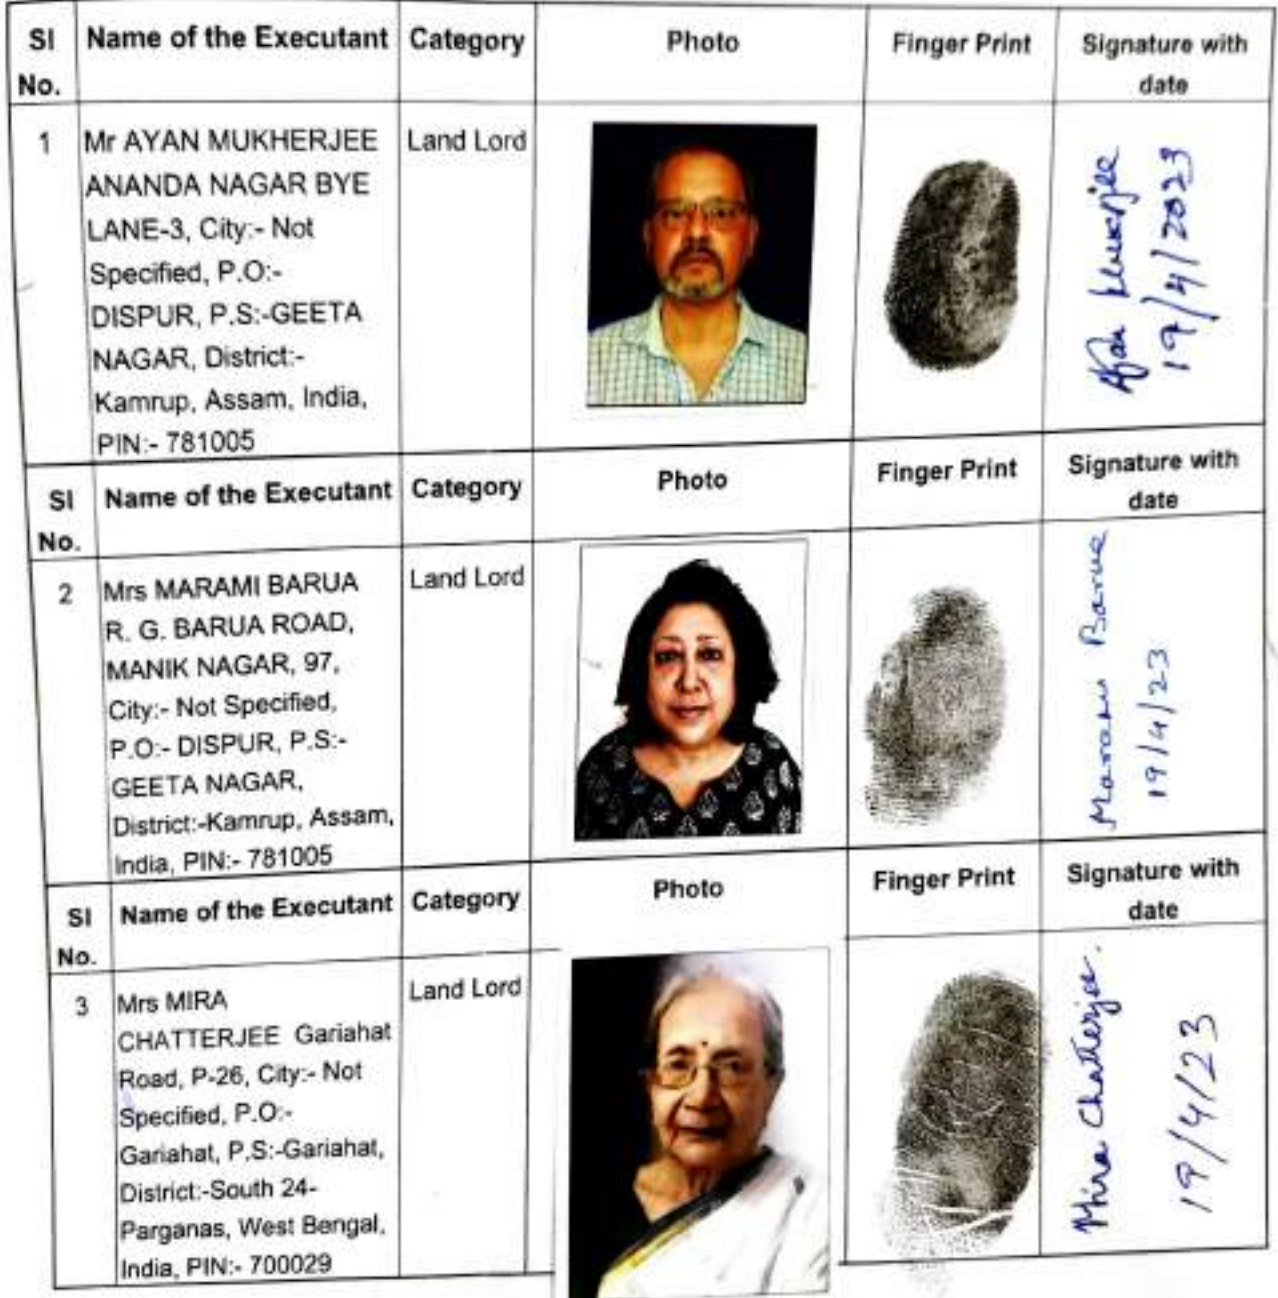 Sl No. Name of the Executant Category Photo Finger Print Signature with date
1 Mr AYAN MUKHERJEE Land Lord
ANANDA NAGAR BYE
LANE-3, City:- Not
Specified, P.O:-
DISPUR, P.S:-GEETA
NAGAR, District:-
Kamrup, Assam, India,
PIN:- 781005
Ayan Mukherjee
19/4/2023
Sl No. Name of the Executant Category Photo Finger Print Signature with date
2 Mrs MARAMI BARUA Land Lord
R. G. BARUA ROAD,
MANIK NAGAR, 97,
City:- Not Specified,
P.O:- DISPUR, P.S:-
GEETA NAGAR,
District:-Kamrup, Assam,
India, PIN:- 781005
Marami Barua
19/4/23
Sl No. Name of the Executant Category Photo Finger Print Signature with date
3 Mrs MIRA Land Lord
CHATTERJEE Gariahat
Road, P-26, City:- Not
Specified, P.O:-
Gariahat, P.S:-Gariahat,
District:-South 24-
Parganas, West Bengal,
India, PIN:- 700029
Mira Chatterjee.
19/4/23